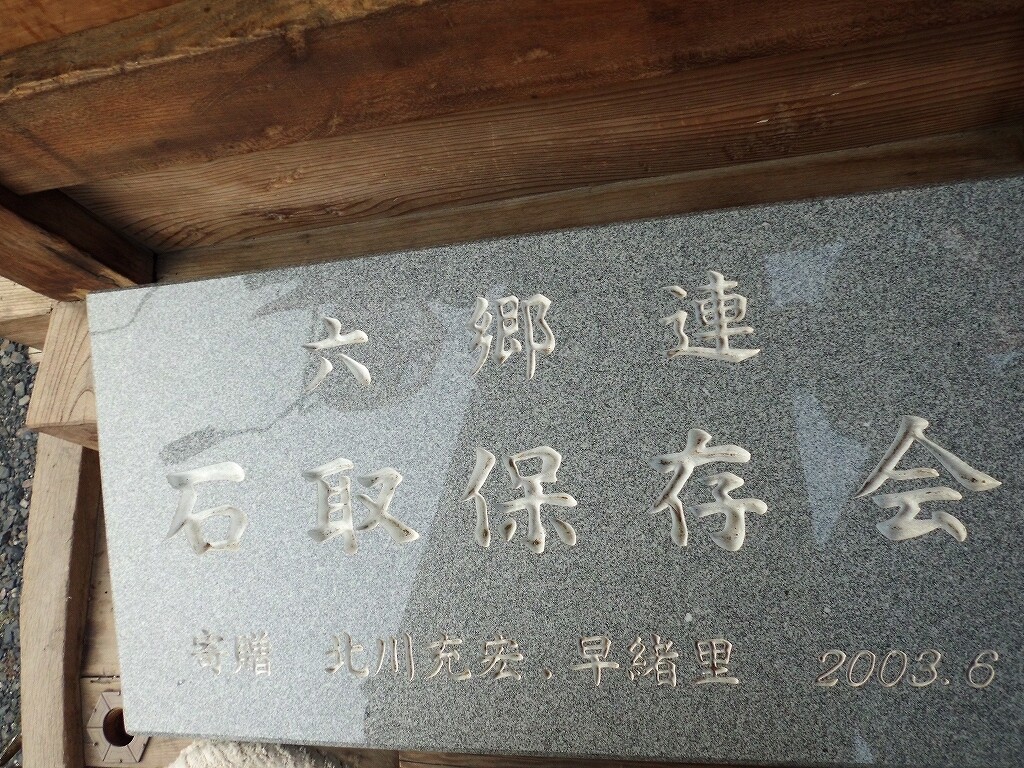 六郷連
石取保存会
寄贈 北川充宏.早緒里 2003.6